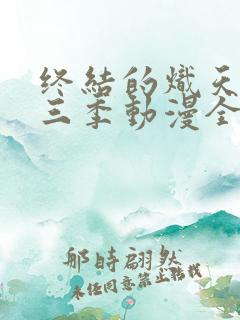 终结的炽天
三季动漫全
那时翩然
未经同意禁止转载